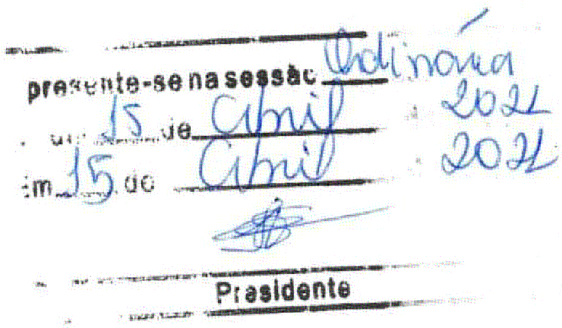 presente-se na sessão Ordinária
15 de Abril 2021
Em 15 de Abril 2021
Presidente